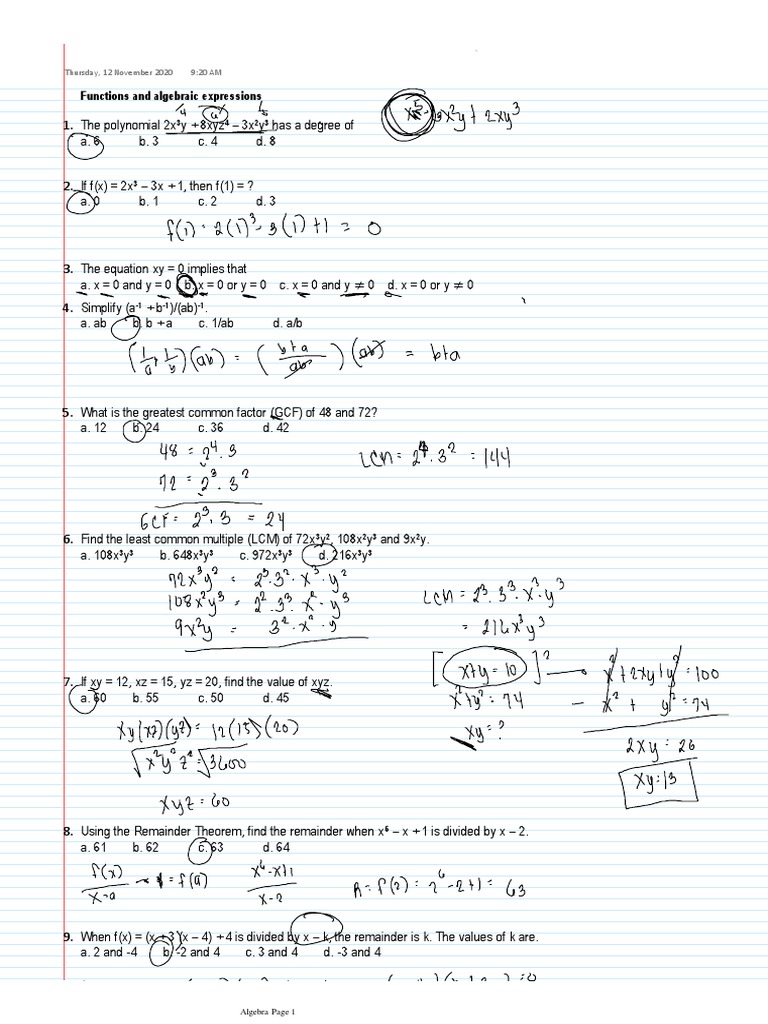 Thursday, 12 November 2020 9:20 AM
Functions and algebraic expressions
1. The polynomial 2x³y + 8xyz⁴ – 3x²y³ has a degree of
a. 6 b. 3 c. 4 d. 8
2. If f(x) = 2x³ – 3x + 1, then f(1) = ?
a. 0 b. 1 c. 2 d. 3
f(1) = 2(1)³ - 3(1) + 1 = 0
3. The equation xy = 0 implies that
a. x = 0 and y = 0 b. x = 0 or y = 0 c. x = 0 and y ≠ 0 d. x = 0 or y ≠ 0
4. Simplify (a⁻¹ + b⁻¹)/(ab)⁻¹.
a. ab b. b + a c. 1/ab d. a/b
(1/a + 1/b)(ab) = (b+a/ab)(ab) = b+a
5. What is the greatest common factor (GCF) of 48 and 72?
a. 12 b. 24 c. 36 d. 42
48 = 2⁴ · 3
LCM = 2⁴ · 3² = 144
72 = 2³ · 3²
GCF = 2³ · 3 = 24
6. Find the least common multiple (LCM) of 72x³y², 108x²y³ and 9x²y.
a. 108x³y³ b. 648x³y³ c. 972x³y³ d. 216x³y³
72x³y² = 2³·3²·x³·y²
108x²y³ = 2²·3³·x²·y³
LCM = 2³·3³·x³·y³
9x²y = 3²·x²·y
= 216x³y³
[x+y = 10]² x² + 2xy + y² = 100
7. If xy = 12, xz = 15, yz = 20, find the value of xyz.
a. 60 b. 55 c. 50 d. 45
x² + y² = 74 - x² + y² = 74
xy = ?
xy(xz)(yz) = 12(15)(20)
2xy = 26
√x²y²z² = √3600
xy = 13
xyz = 60
8. Using the Remainder Theorem, find the remainder when x⁶ – x + 1 is divided by x – 2.
a. 61 b. 62 c. 63 d. 64
f(x)/x-a = f(a) x⁶-x+1/x-2 R = f(2) = 2⁶ - 2 + 1 = 63
9. When f(x) = (x + 3)(x – 4) + 4 is divided by x – k, the remainder is k. The values of k are.
a. 2 and -4 b. -2 and 4 c. 3 and 4 d. -3 and 4
Algebra Page 1